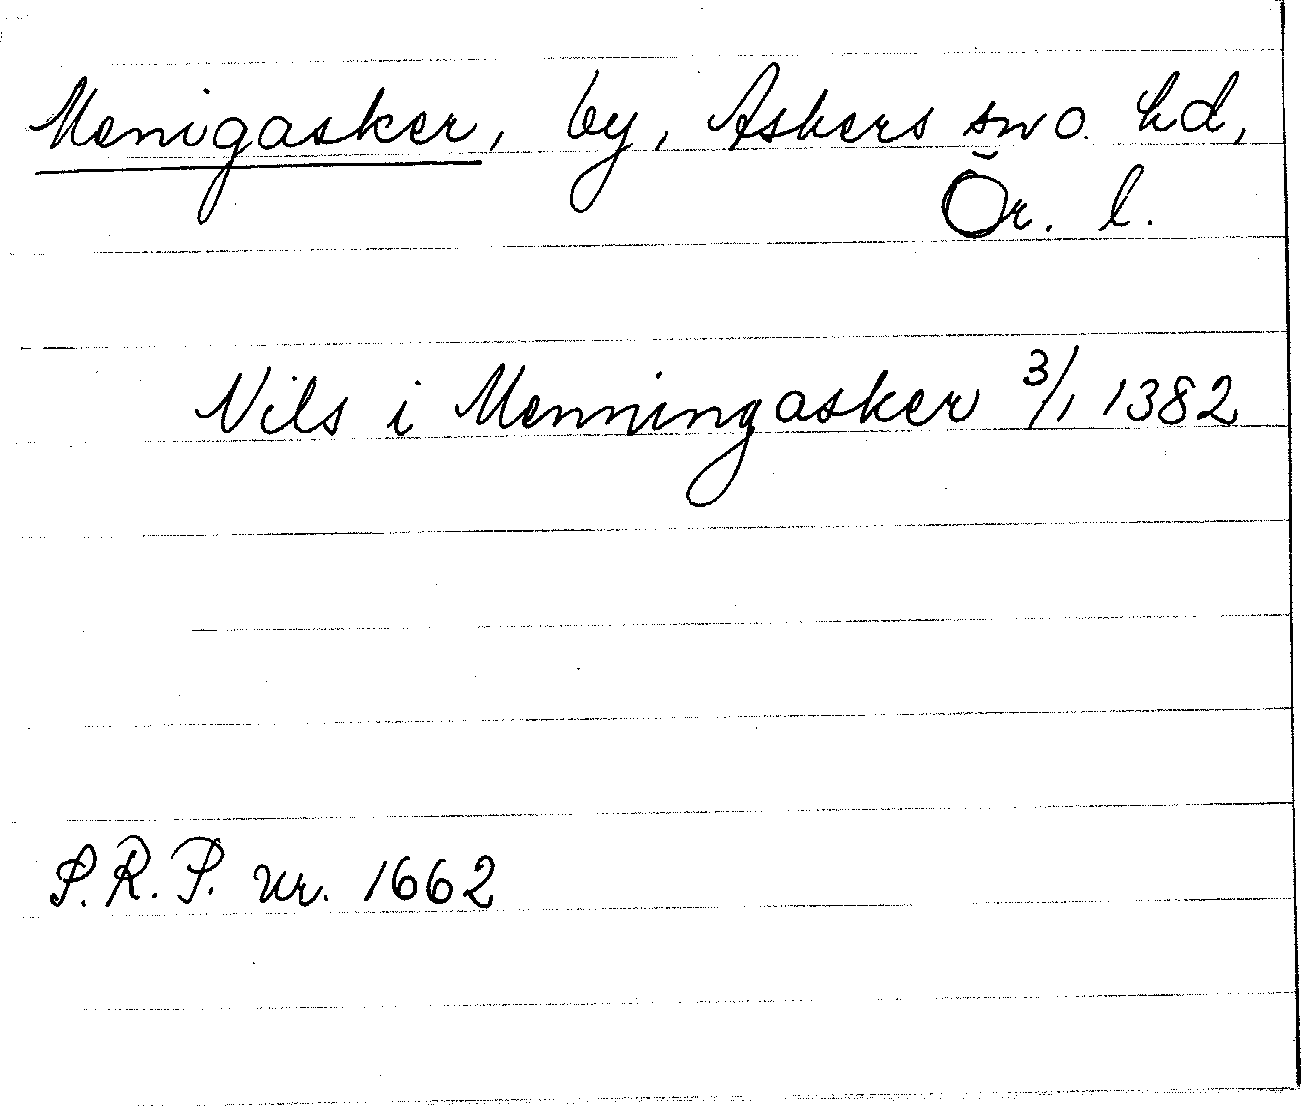 Menigasker, by, Askers sn o. hd,
Ör. l.
Nils i Menningasker 3/1 1382
S.R.P. nr. 1662